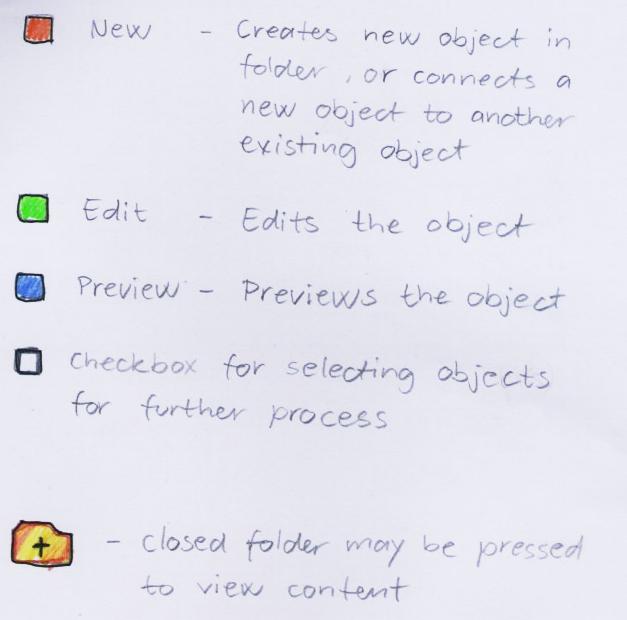 New - Creates new object in
folder, or connects a
new object to another
existing object
Edit - Edits the object
Preview - Previews the object
Checkbox for selecting objects
for further process
+ - closed folder may be pressed
to view content